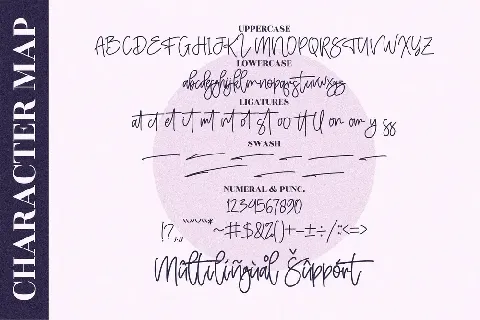 CHARACTER MAP
UPPERCASE
ABCDEFGHIJKLMNOPQRSTUVWXYZ
LOWERCASE
abcdefghijklmnopqrstuvwxyz
LIGATURES
at ct et it mt nt ot st oo tt ll on om
SWASH
NUMERAL & PUNC.
1234567890
~#$&%()+-±÷/:<=>
Måltilíñgùål Šûppórt